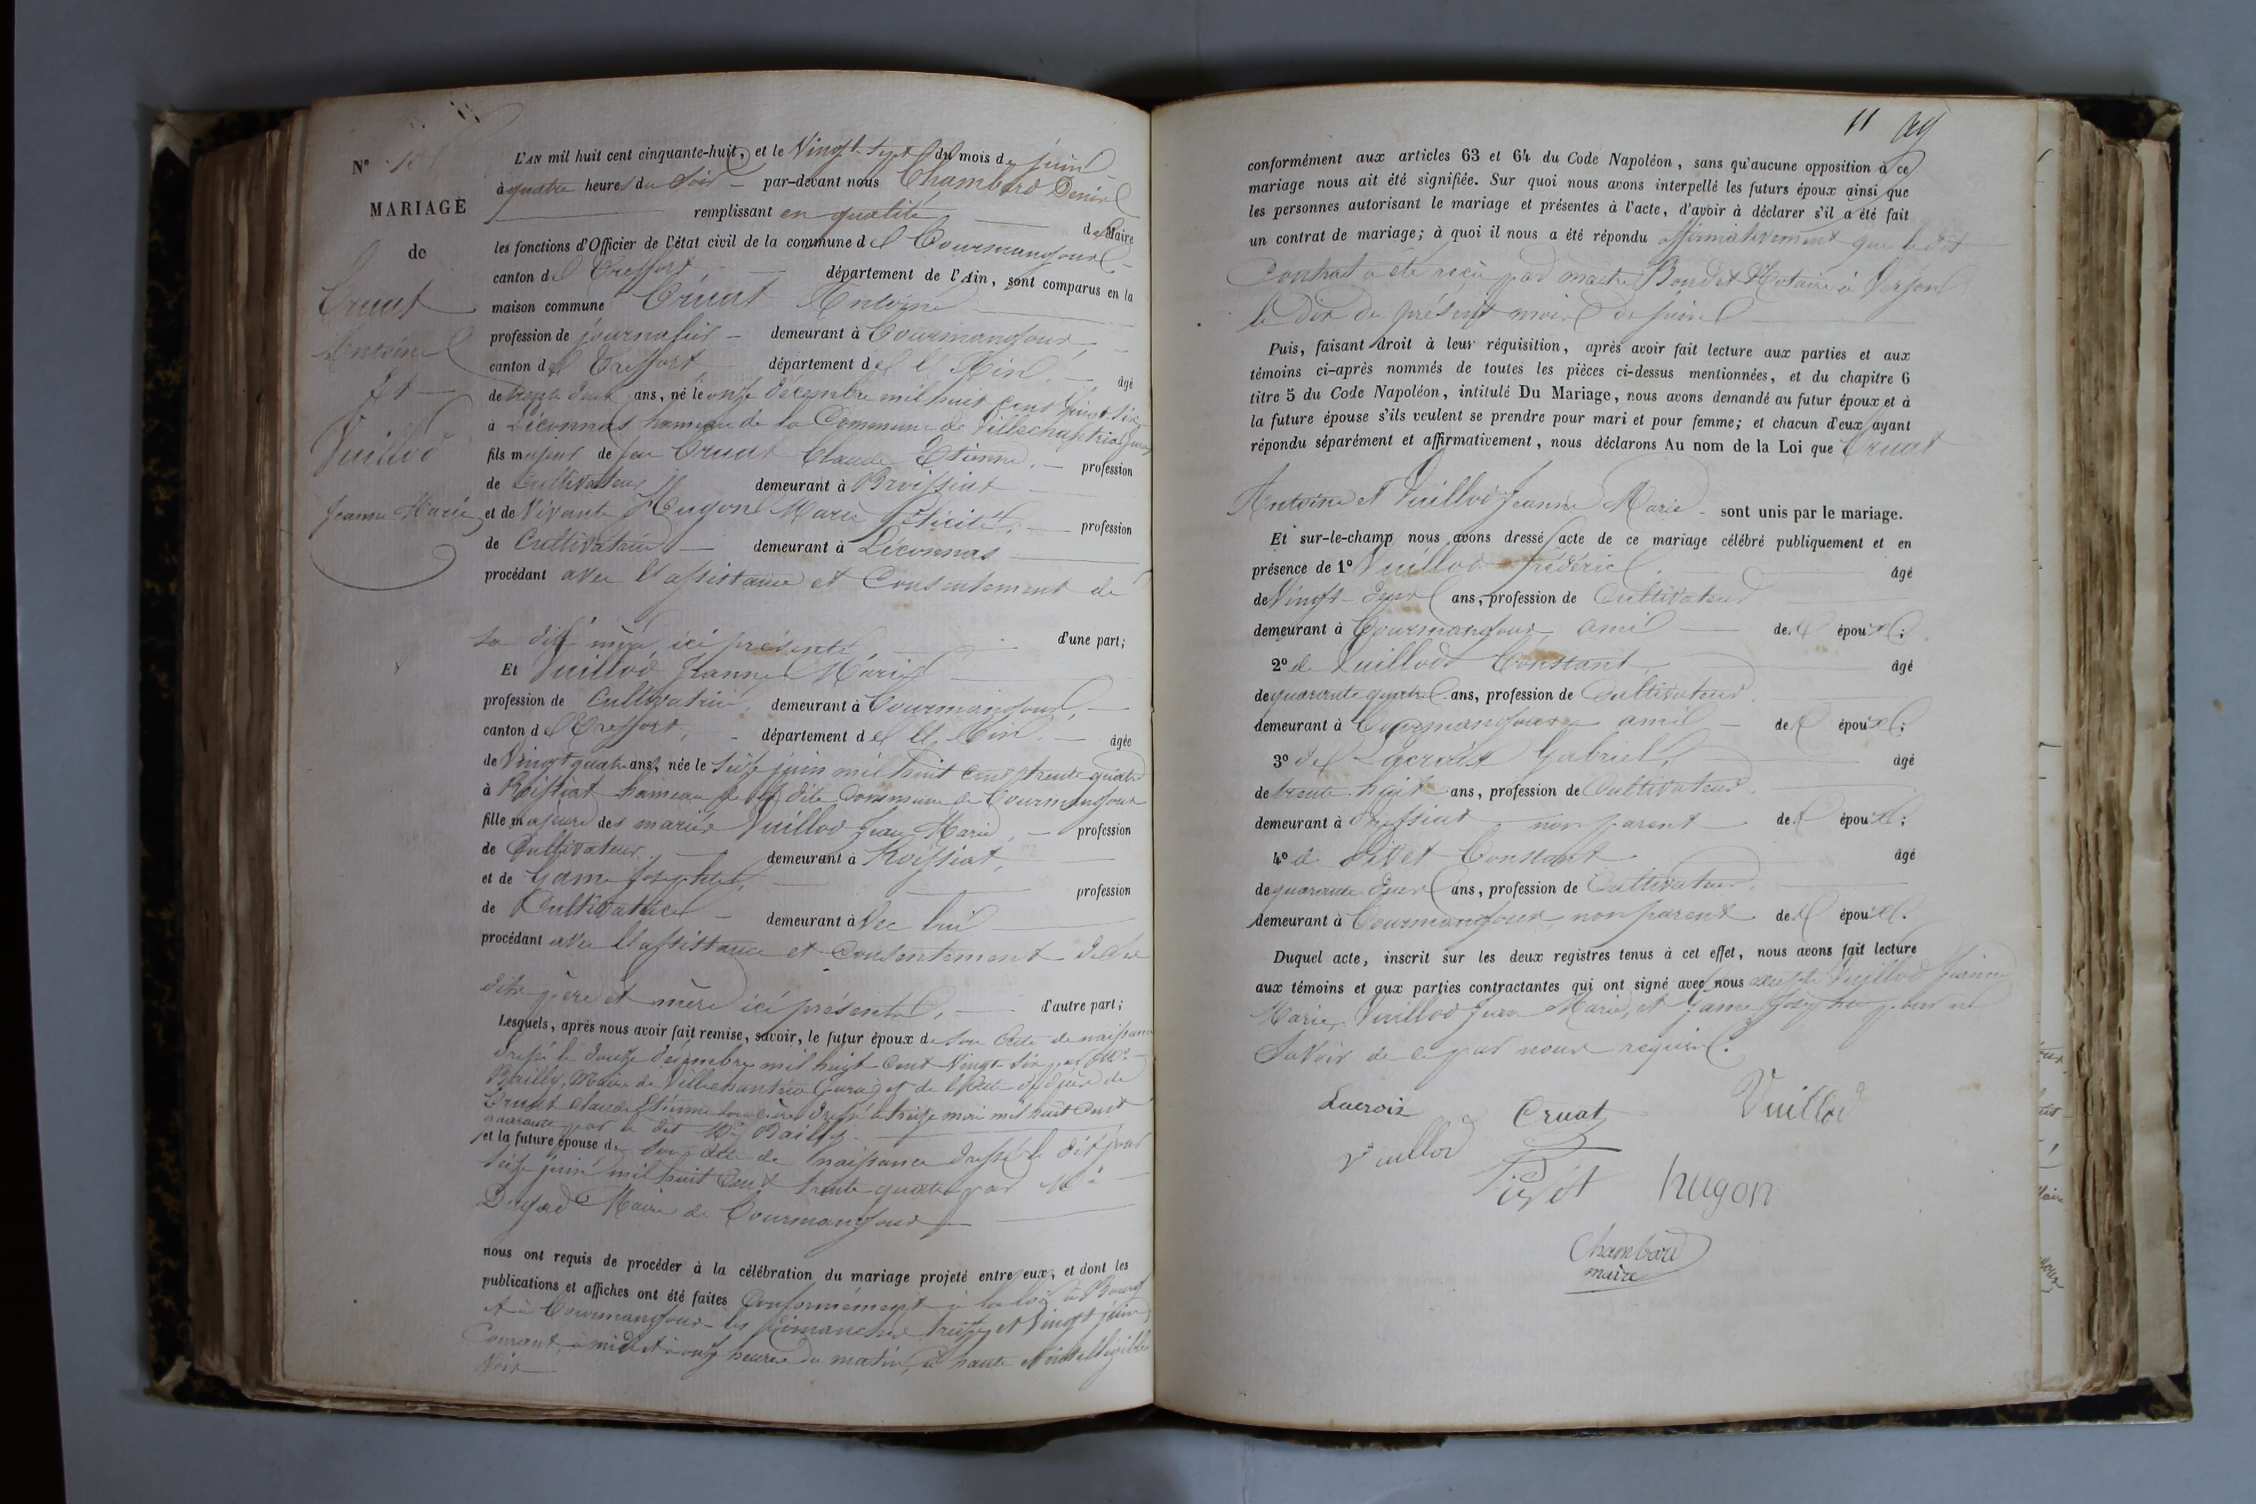 N° 10
MARIAGE
de
Cruat
Antoine
Et
Vuillod
Jeanne Marie
L'AN mil huit cent cinquante-huit, et le Vingt-Sept du mois de juin
à quatre heures du Soir par-devant nous Chambard Denis
remplissant en qualité de Maire
les fonctions d'Officier de l'état civil de la commune de Courmangoux
canton de Treffort, département de l'Ain, sont comparus en la
maison commune Cruat Antoine
profession de journalier demeurant à Courmangoux,
canton de Treffort département de l'Ain. âgé
de trente deux ans, né le onze décembre mil huit cent vingt six
à Liconnas hameau de la Commune de Villechantria Jura
fils majeur de feu Cruat Claude Etienne. profession
de Cultivateur demeurant à Broissiat
et de Vivante Hugon Marie Félicité, profession
de Cultivatrice demeurant à Liconnas
procédant avec l'assistance et Consentement de
sa dite mère, ici présente d'une part;
Et Vuillod Jeanne Marie
profession de Cultivatrice, demeurant à Courmangoux,
canton de Treffort, département de l'Ain. âgée
de Vingt quatre ans, née le seize juin mil huit cent trente quatre
à Roissiat hameau de la dite Commune de Courmangoux
fille majeure des mariés Vuillod Jean Marie, profession
de Cultivateur demeurant à Roissiat,
et de Game Josephte, profession
de Cultivatrice demeurant à Vec lui
procédant avec l'assistance et Consentement de ses
dits père et mère ici présents, d'autre part;
Lesquels, après nous avoir fait remise, savoir, le futur époux de Son Acte de naissance
dressé le douze décembre mil huit Cent Vingt Six par Mr
Bailly, Maire de Villechantria (Jura) et de l'acte de décès de
Cruat Claude Etienne son père dressé le treize mai mil huit Cent
quarante par le dit Mr Bailly.
et la future épouse de Son acte de naissance dressé le dit jour
Seize juin mil huit Cent trente quatre par Mr
Maire de Courmangoux
nous ont requis de procéder à la célébration du mariage projeté entre eux, et dont les
publications et affiches ont été faites Conformément à la loi à
et à Courmangoux les Dimanches treize et Vingt juin
Courant, à midi et à onze heures du matin, à haute et intelligible
Voix
11
conformément aux articles 63 et 64 du Code Napoléon, sans qu'aucune opposition à ce
mariage nous ait été signifiée. Sur quoi nous avons interpellé les futurs époux ainsi que
les personnes autorisant le mariage et présentes à l'acte, d'avoir à déclarer s'il a été fait
un contrat de mariage; à quoi il nous a été répondu affirmativement que le dit
Contrat a été reçu par maître Notaire à
le Dix du présent mois de juin
Puis, faisant droit à leur réquisition, après avoir fait lecture aux parties et aux
témoins ci-après nommés de toutes les pièces ci-dessus mentionnées, et du chapitre 6
titre 5 du Code Napoléon, intitulé Du Mariage, nous avons demandé au futur époux et à
la future épouse s'ils veulent se prendre pour mari et pour femme; et chacun d'eux ayant
répondu séparément et affirmativement, nous déclarons Au nom de la Loi que Cruat
Antoine et Vuillod Jeanne Marie sont unis par le mariage.
Et sur-le-champ nous avons dressé acte de ce mariage célébré publiquement et en
présence de 1° Vuillod frédéric. âgé
de Vingt-Deux ans, profession de Cultivateur
demeurant à Courmangoux ami des époux;
2° de Vuillod Constant âgé
de quarante quatre ans, profession de Cultivateur.
demeurant à Courmangoux ami des époux;
3° de Lacroix Gabriel, âgé
de trente huit ans, profession de Cultivateur.
demeurant à Dressiat non parent des époux;
4° de Pivet Constant âgé
de quarante Deux ans, profession de Cultivateur.
demeurant à Courmangoux non parent des époux.
Duquel acte, inscrit sur les deux registres tenus à cet effet, nous avons fait lecture
aux témoins et aux parties contractantes qui ont signé avec nous excepté Vuillod Jeanne
Marie, Vuillod Jean Marie, et Game Josephte pour ne
Savoir de ce par nous requis.
Lacroix Cruat Vuillod
Vuillod
Pivét hugon
Chambard
maire